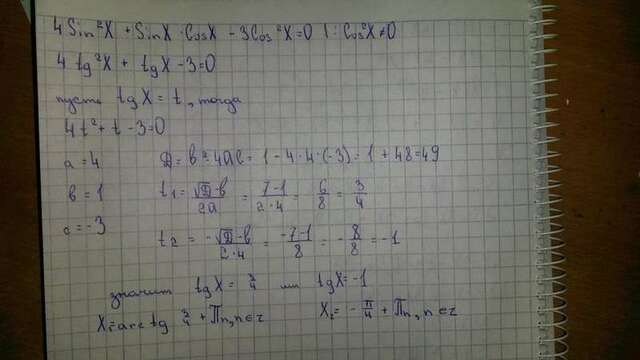 4Sin²X + SinX·CosX - 3Cos²X=0 |: Cos²X≠0
4 tg²X + tgX - 3=0
пусть tgX = t, тогда
4t² + t - 3=0
a = 4 D = b²-4ac = 1 - 4·4·(-3) = 1 + 48 = 49
b = 1 t₁ = (√D - b)/2a = (7-1)/(2·4) = 6/8 = 3/4
c = -3 t₂ = (-√D - b)/(2·4) = (-7-1)/8 = -8/8 = -1
значит tgX = 3/4 или tgX = -1
X₁=arctg 3/4 + Пn, n∈z X₂= -П/4 + Пn, n∈z